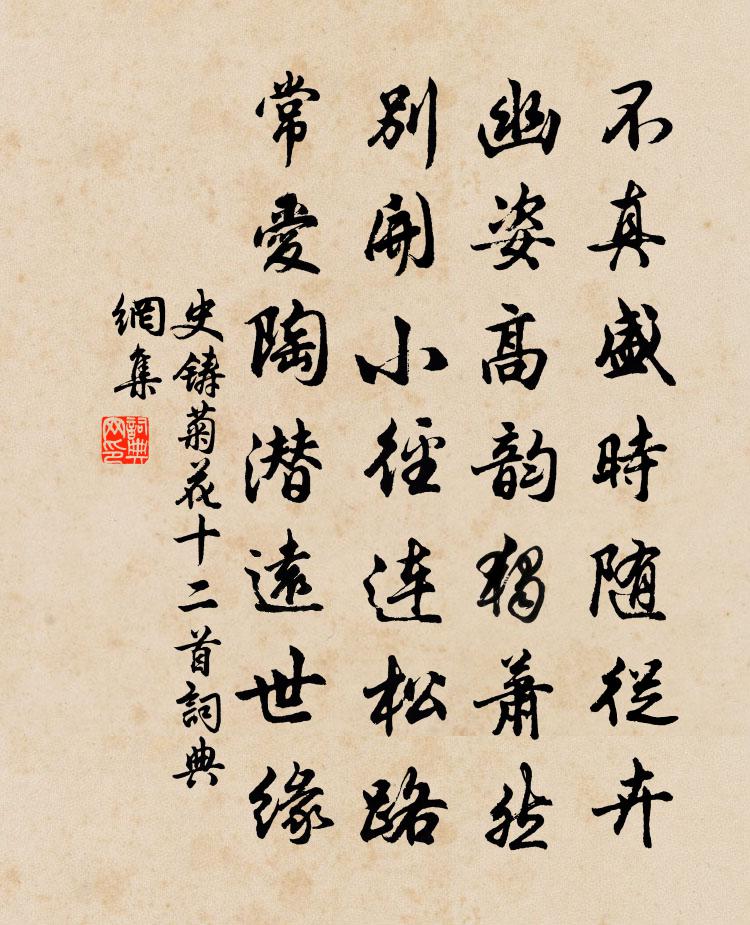 不真盛時随從卉
幽姿高韵獨蕭然
別開小徑連松路
常愛陶潜遠世緣
史鑄菊花十二首詞典
網集
詞典
网印